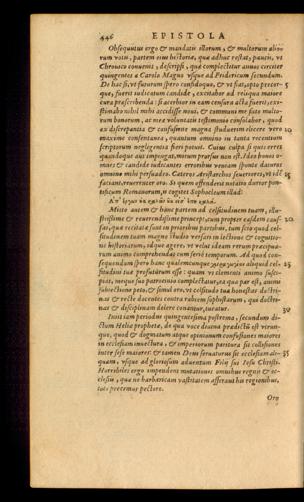 446 EPISTOLA
Obsequutus ergo & mandatis illorum, & multorum alio
rum votis, partem eius historiæ, quæ adhuc restat, paucis, vt
Chronico conuenit, descripsi, quæ complectitur annos circiter
quingentos a Carolo Magno vsque ad Fridericum secundum.
De hac si, vt futurum spero confidoque, & vt fiat, opto precor- 5
que, fueris iudicatum candide, excitabor ad reliqua maiore
cura prescribenda: si acerbior in eam censura acta fuerit, exi-
stimabo nihil mihi accidisse noui, & communi me fato multo-
rum bonorum, ac mea voluntatis testimonio consolabor, quod
ex discrepantia & confusione magna studuerim elicere vero 10
maxime consentanea, quantum omnino in tanta recentium
scriptorum neglegentia fieri potuit. Cuius culpa si quis erres
quandoque aut impingat, mirum prorsus non est. Ideo bonos o-
mnes & candide iudicantes erroribus veniam sponte daturos
omnino mihi persuadeo. Cateros Aristarchos seueriores, vt idē 15
faciant, reuerenter oro. Si quem offenderit notatio durior pon-
tificum Romanorum, is cogitet Sophocleum illud:
Mitto autem & hanc partem ad celsitudinem tuam, illu-
strissime & reuerendissime princeps, cum propter easdem cau- 20
sas, quæ recitatæ sunt in prioribus partibus, tum scio quod cel-
situdinem tuam magno studio versari in lectione & cognitio-
ne historiarum, idque agere, vt velut ideam rerum præcipua-
rum animo comprehendas eam ferio temporum. Ad quod con-
sequendum spero hanc qualemcunque aliquid cel- 25
situdini tuæ profuturam esse: quam vt clementi animo susci-
piat, neque suo patrocinio complectatur, ea qua par est, animi
subiectione peto, & simul oro, vt celsitudo tua honestas doctri-
nas & recte docentes contra rabiem sophistarum, qui doctri-
nas & disciplinam delere conantur, tueatur. 30
Initi iam periodus quingentesima postrema, secundum di-
ctum Heliæ prophetæ, de qua voce diuina prædictū est virun-
que, quod & dogmatum atque opinionum confusiones maiores
in ecclesiam inuectura, & imperiorum paritura sit collisiones
inter sese maiores: & tamen Deus seruaturus sit ecclesiam ali- 35
quam, vsque ad gloriosum aduentum Filij sui Iesu Christi.
Horribiles ergo impendent mutationes omnibus regnis & ec-
clesiis, quæ ne barbaricam vastitatem afferant his regionibus,
totis precemur pectore.
Oro